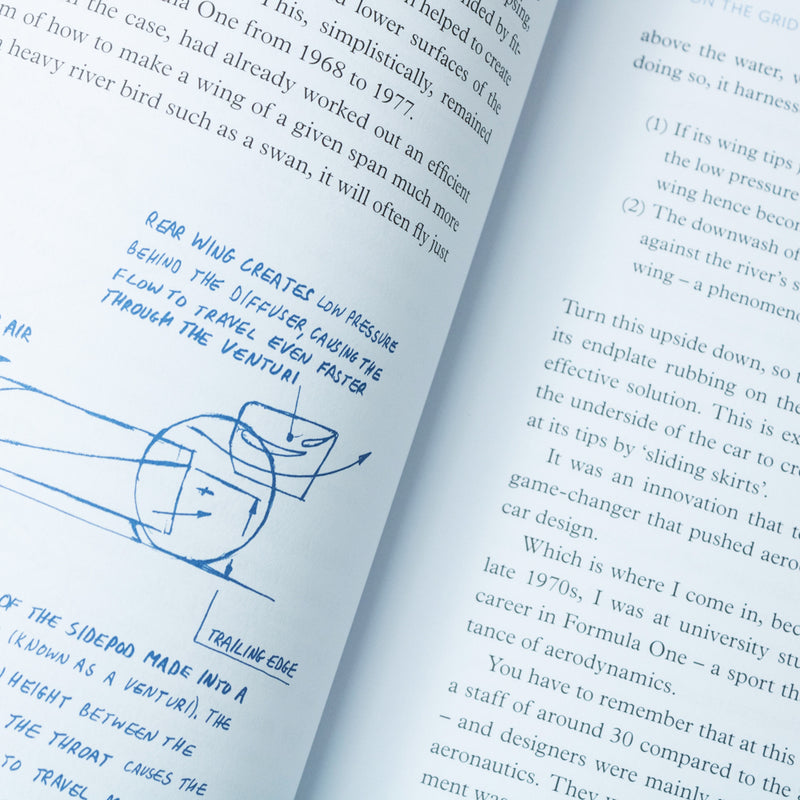 psing,
nded by fit-
n helped to create
d lower surfaces of the
la One from 1968 to 1977.
This, simplistically, remained
n the case, had already worked out an efficient
m of how to make a wing of a given span much more
a heavy river bird such as a swan, it will often fly just
REAR WING CREATES LOW PRESSURE
BEHIND THE DIFFUSER, CAUSING THE
FLOW TO TRAVEL EVEN FASTER
THROUGH THE VENTURI
AIR
TRAILING EDGE
OF THE SIDEPOD MADE INTO A
(KNOWN AS A VENTURI). THE
HEIGHT BETWEEN THE
THE THROAT CAUSES THE
TO TRAVEL
ON THE GRID
above the water, w
doing so, it harness
(1) If its wing tips
the low pressure
wing hence becom
(2) The downwash of
against the river's s
wing – a phenomeno
Turn this upside down, so t
its endplate rubbing on the
effective solution. This is ex
the underside of the car to cre
at its tips by ‘sliding skirts’.
It was an innovation that to
game-changer that pushed aero
car design.
Which is where I come in, bec
late 1970s, I was at university stu
career in Formula One – a sport th
tance of aerodynamics.
You have to remember that at this
a staff of around 30 compared to the
– and designers were mainly
aeronautics. They w
ment was